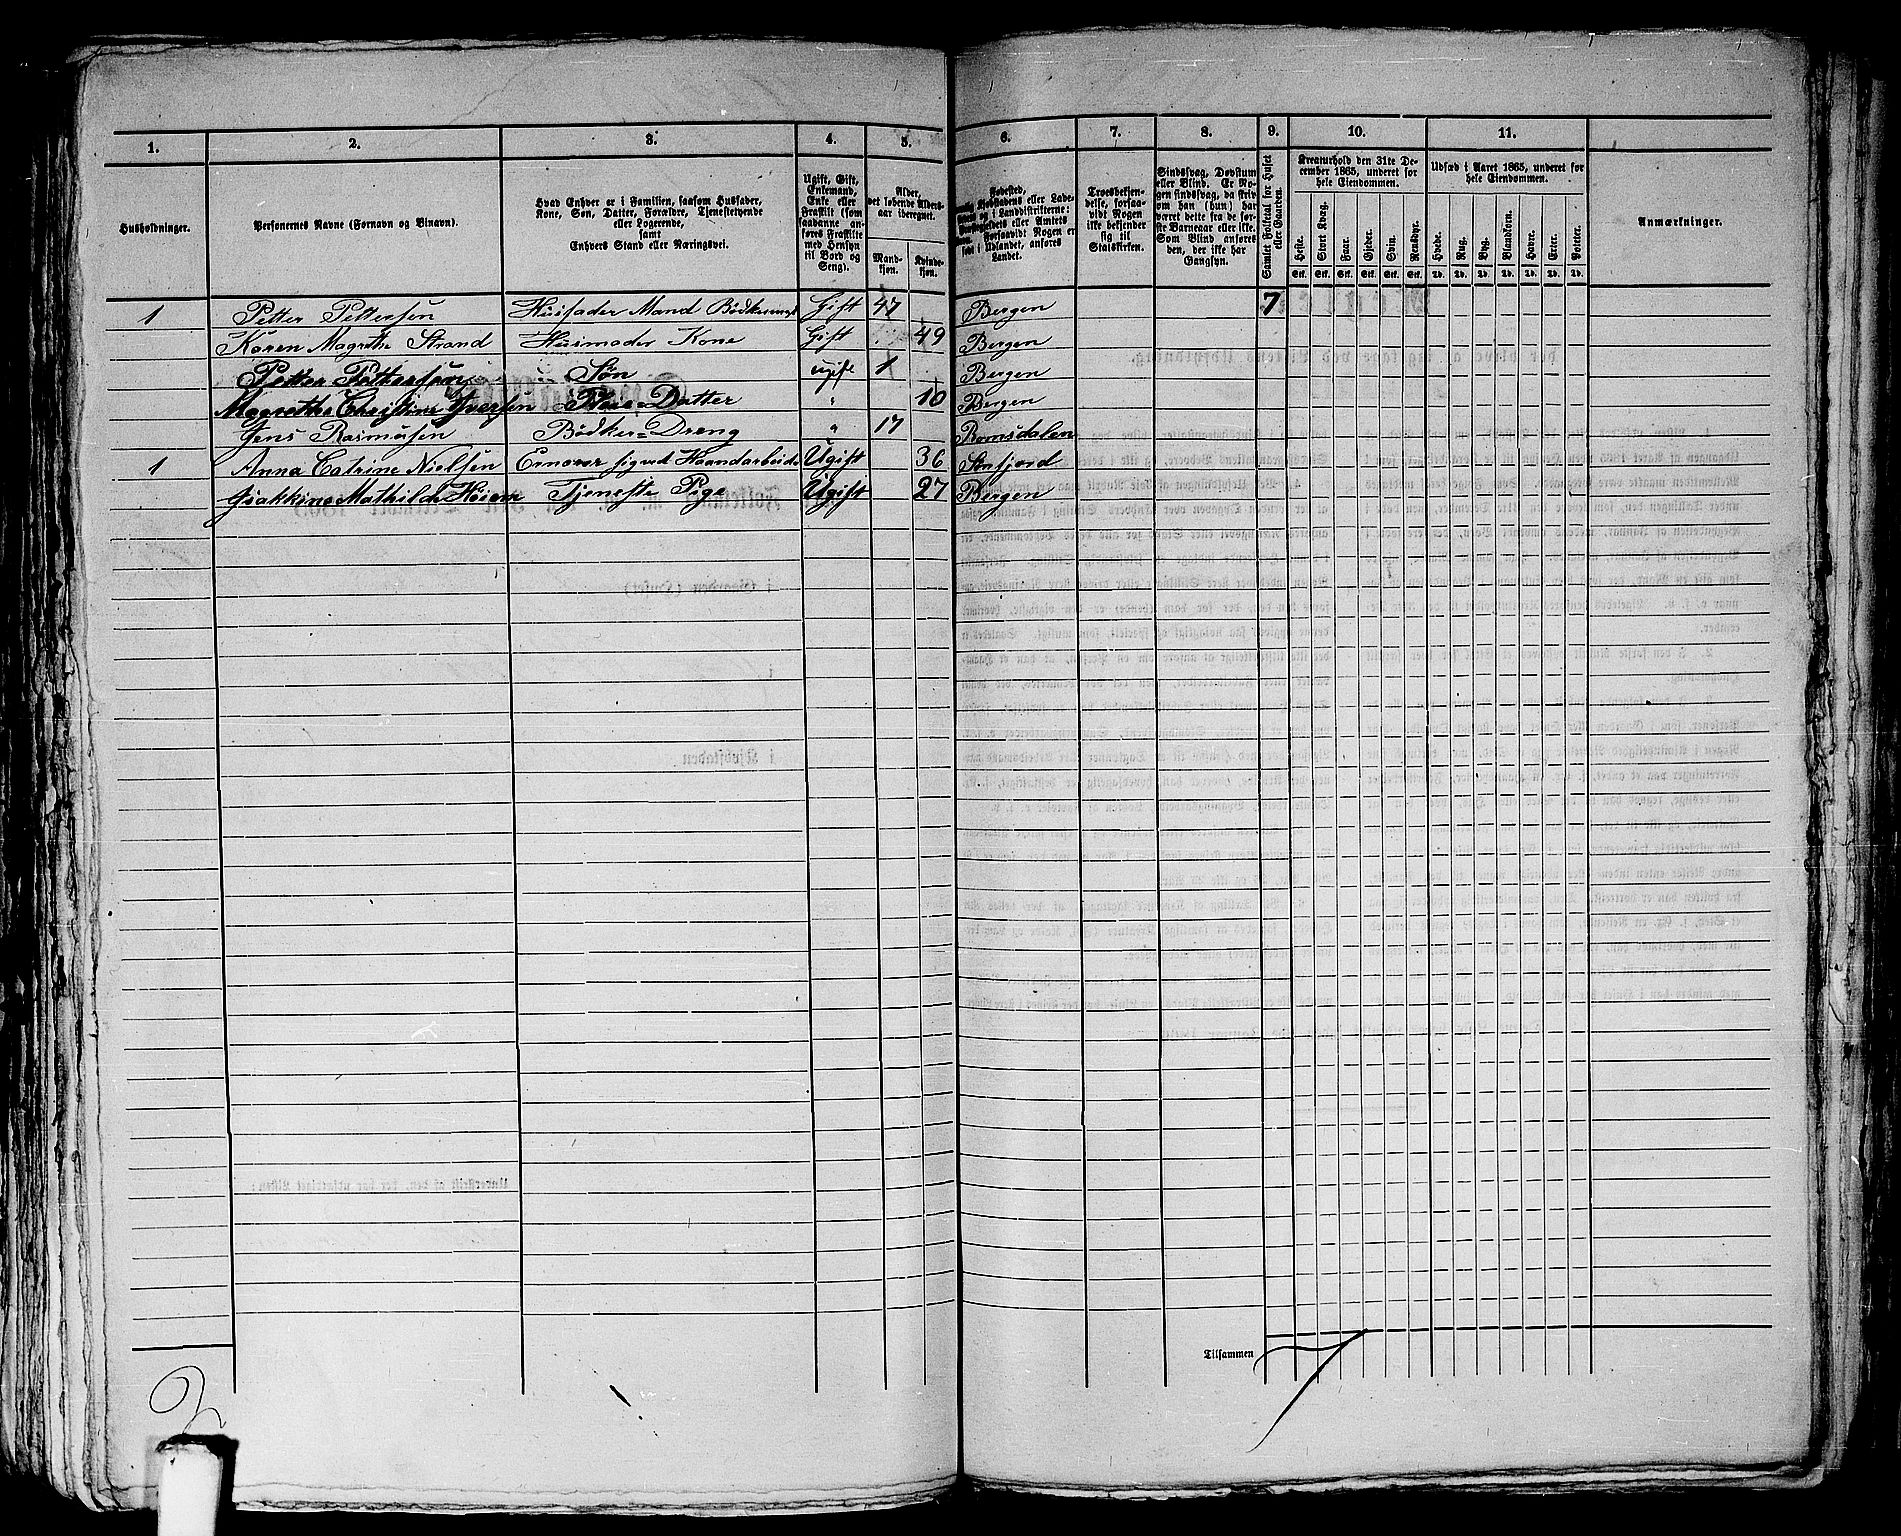 1. 2. 3. 4. 5. 6. 7. 8. 9. 10. 11.
Husholdninger.
Personernes Navne (Fornavn og Binavn).
Hvad Enhver er i Familien, saasom Husfader,
Kone, Søn, Datter, Forældre, Tjenestetyende
eller Logerende,
samt
Enhvers Stand eller Næringsvei.
Ugift, Gift,
Enkemand,
Enke eller
Fraskilt (som
saadanne an-
føres Fraskilte
med Hensyn
til Bord og
Seng).
Alder,
det løbende Alders-
aar iberegnet.
Mand-
kjøn.
Kvinde-
kjøn.
Fødested,
Kjøbstadens eller Lade-
og i Landdistrikterne:
eller Amtets
Forsaavidt Nogen er
i Udlandet, anføres
Landet.
Troesbekjen-
delse, forsaa-
vidt Nogen
ikke bekjender
sig til
Statskirken.
Sindssvag, Døvstum
eller Blind. Er No-
gen sindssvag, da skriv
om han (hun) har
været dette fra de før-
ste Barneaar eller ikke.
Som Blind anføres
den, der ikke har
Gangsyn.
Samlet Folketal for Huset
eller Gaarden.
Kreaturhold den 31te De-
cember 1865, underet for
hele Eiendommen.
Heste. Stort Kvæg. Faar. Gjeder. Svin. Rensdyr.
Stk. Stk. Stk. Stk. Stk. Stk.
Udsæd i Aaret 1865, underet for
hele Eiendommen.
Hvede. Rug. Byg. Blandkorn. Havre. Erter. Poteter.
Td. Td. Td. Td. Td. Td. Td.
Anmærkninger.
1 Petter Pettersen Husfader Mand Gift 47 Bergen 7
Karen Magrethe Strand Husmoder Kone Gift 49 Bergen
Petter Pettersen Søn ugift 1 Bergen
Magrethe Christine Iversen Datter " 10 Bergen
Jens Rasmusen Bødker=Dreng " 17 Romsdalen
1 Anna Catrine Nielsen Ernærer sig ved Haandarbeide Ugift 36 Sønfjord
Mathilde Tjeneste Pige Ugift 27 Bergen
Tilsammen 7